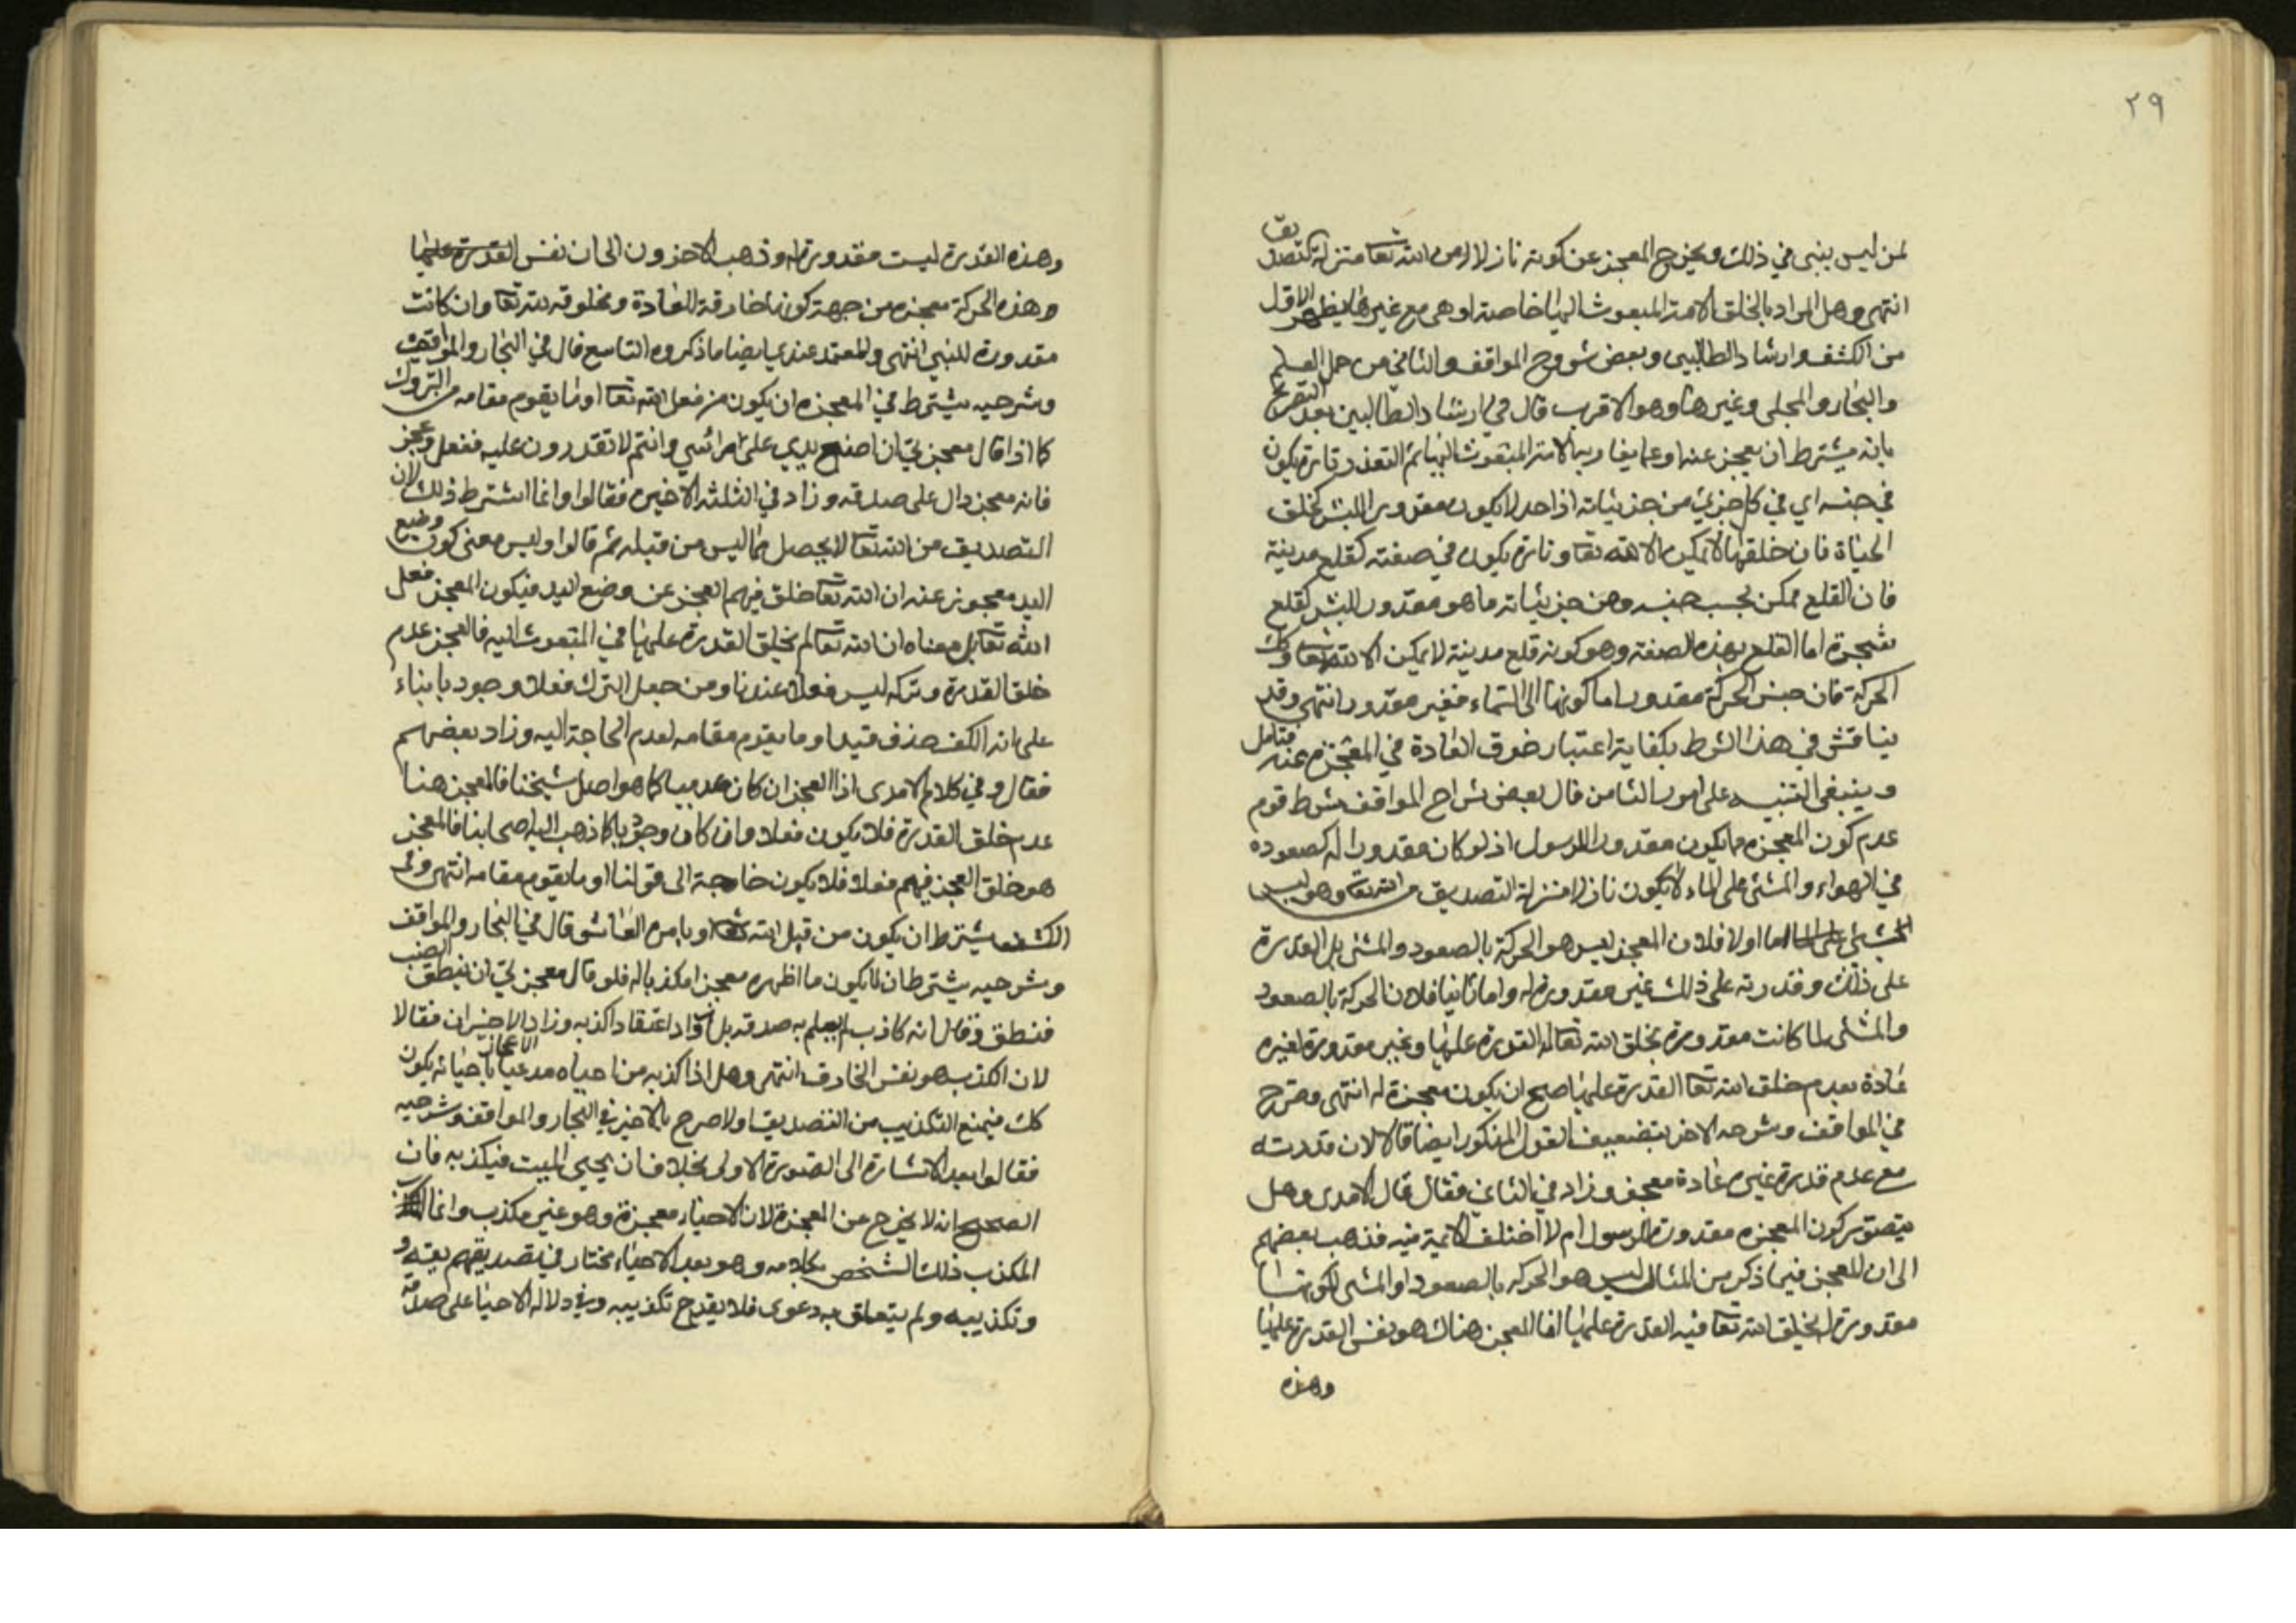 ٢٩
لمن ليس بنبي في ذلك ويخرج المعجز عن كونه نازلا من الله تعا منزلة التصديق
انتهى وهل المراد بالخلق الامة المبعوث اليها خاصة او هي مع غيرها يظهر الاول
من الكشف وارشاد الطالبين وبعض شروح المواقف والثاني من جمل العلم
والبحار والمجلي وغيرها وهو الاقرب قال في ارشاد الطالبين بعد التصريح
بانه يشترط ان يعجز عنه او عما يقاربه الامة المبعوث اليها ثم التعذر تارة يكون
في جنسه اي في كل جزئي من جزئياته اذ احد لا يكون مقدورا للبشر كخلق
الحياة فان خلقها لا يمكن الا لله تعا وتارة يكون في صفته كقلع مدينة
فان القلع ممكن بحسب جنسه ومن جزئياته ما هو مقدور للبشر كقلع
شجرة اما القلع بهذه الصفة وهو كونه قلع مدينة لا يمكن الا لله تعا وكك
الحركة فان جنس الحركة مقدور اما كونها الى السماء فغير مقدور انتهى وقد
يناقش في هذا الشرط بكفاية اعتبار خرق العادة في المعجزة عنه فتامل
وينبغي التنبيه على امور الثامن قال بعض شراح المواقف شرط قوم
عدم كون المعجزه مما يكون مقدورا للرسول اذ لو كان مقدورا له كصعوده
في الهواء والمشي على الماء لا يكون نازلا منزلة التصديق من الله تعا وهو ليس
اما اولا فلان المعجز ليس هو الحركة بالصعود والمشي بل القدرة
على ذلك وقدرته على ذلك غير مقدورة له واما ثانيا فلان الحركة بالصعود
والمشي لما كانت مقدورة بخلق الله تعا له القدرة عليها وغير مقدورة لغيره
عادة بعدم خلق الله تعا القدرة عليها صح ان يكون معجزة له انتهى وصرح
في المواقف وشرحه الاخر بتضعيف القول المذكور ايضا قالا لان قدرته
مع عدم قدرة غيره عادة معجز وزاد في الثاني فقال قال الامدي وهل
يتصور كون المعجزه مقدورة للرسول ام لا اختلف الائمة فيه فذهب بعضهم
الى ان المعجز فيما ذكر من المثال ليس هو الحركه بالصعود او المشي لكونها
مقدورة له بخلق الله تعا فيه القدرة عليها انما المعجز هناك هو نفس القدرة عليها
وهذه
وهذه القدرة ليست مقدورة له وذهب الاخرون الى ان نفس القدرة عليها
وهذه الحركة معجزه من جهة كونها خارقة للعادة ومخلوقه لله تعا وان كانت
مقدورة للنبي انتهى والمعتمد عندي ايضا ما ذكروه التاسع قال في البحار والمواقف
وشرحيه يشترط في المعجزه ان يكون من فعل الله تعا او ما يقوم مقامه من التروك
كما اذا قال معجزتي ان اضع يدي على راسي وانتم لا تقدرون عليه ففعل وعجز
فانه معجز دال على صدقه وزاد في الثلثه الاخيره فقالوا وانما اشترط ذلك لان
التصديق من الله تعا لا يحصل بما ليس من قبله ثم قالوا وليس معنى كون وضع
اليد معجوز عنه ان الله تعا خلق فيهم العجز عن وضع اليد فيكون المعجز فعل
الله تعا بل معناه ان الله تعا لم يخلق القدرة عليها في المبعوث اليه فالعجز عدم
خلق القدرة وتركه ليس فعلا عندنا ومن جعل الترك فعلا وجوديا بناء
على انه الكف حذف قيد او ما يقوم مقامه لعدم الحاجة اليه وزاد بعضهم
فقال وفي كلام الامدي اذا العجز ان كان عدميا كما هو اصل شيخنا فالمعجز هنا
عدم خلق القدرة فلا يكون فعلا وان كان وجوديا كما ذهب اليه اصحابنا فالمعجز
هو خلق العجز فيهم فعلا فلا يكون حاجة الى قولنا او ما يقوم مقامه انتهى وفي
الكشف يشترط ان يكون من قبل الله تعا او بامره العاشر قال في البحار والمواقف
وشرحيه يشترط ان لا يكون ما اظهره معجزا مكذبا له فلو قال معجزتي ان ينطق الضب
فنطق وقال انه كاذب لم يعلم به صدقه بل زاد اعتقاد اكذبه وزاد الاخيران فقالا
لان الكذب هو نفس الخارق انتهى وهل اذا كذبه من احياه مدعيا الاعجاز باحيائه يكون
كك فيمنع التكذيب من التصديق اولا صرح بالاخير في البحار والمواقف وشرحيه
فقالوا بعد الاشارة الى الصورة الاولى بخلاف ان يحيي الميت فيكذبه فان
الصحيح انه لا يخرج عن المعجزة لان الاحياء معجزة وهو غير مكذب وانما
المكذب ذلك الشخص بكلامه وهو بعد الاحياء مختار في تصديقهم بقية و
وتكذيبه ولم يتعلق به دعوى فلا يقدح تكذيبه في دلاله الاحيا على صدقه